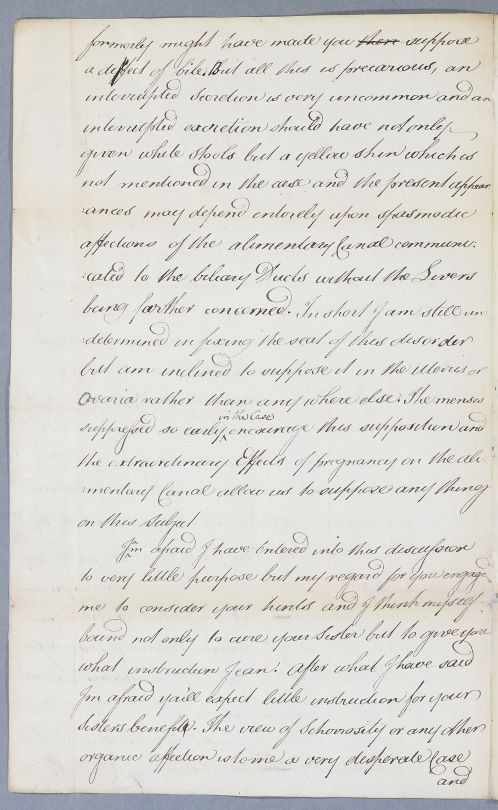 formerly might have made you then suppose
a defect of bile. But all this is precarious, an
interrupted Secretion is very uncommon and an
interrupted excretion should have not only
given white stools but a yellow skin which is
not mentioned in the case and the present appear
:ances may depend entirely upon spasmodic
affections of the alimentary Canal communi:
:cated to the biliary Ducts without the Livers
being farther concerned. In short I am still un:
:determined in fixing the seat of this disorder
but am inclined to suppose it in the Uterus or
Ovaria rather than any where else. The menses
suppressed so early in the Case encourage this supposition and
the extraordinary Effects of pregnancy on the ali:
:mentary Canal allow us to suppose any thing
on this Subject
I'm afraid I have Entered into this discussion
to very little purpose but my regard for you engage
me to consider your hints and I think myself
bound not only to cure your Sister but to give you
what instruction I can. After what I have said
I'm afraid you'll expect little instruction for your
Sisters benefit. The view of Schirrosity or any other
organic affection is to me a very desperate Case
and